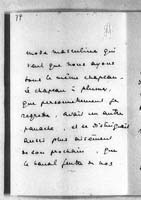 79
mode masculine qui
veut que nous ayons
tous le même chapeau.
Le chapeau à plume,
que personnellement je
regrette, avait un autre
panache, et se distinguait
aussi plus aisément
de son prochain, que
le banal feutre de nos